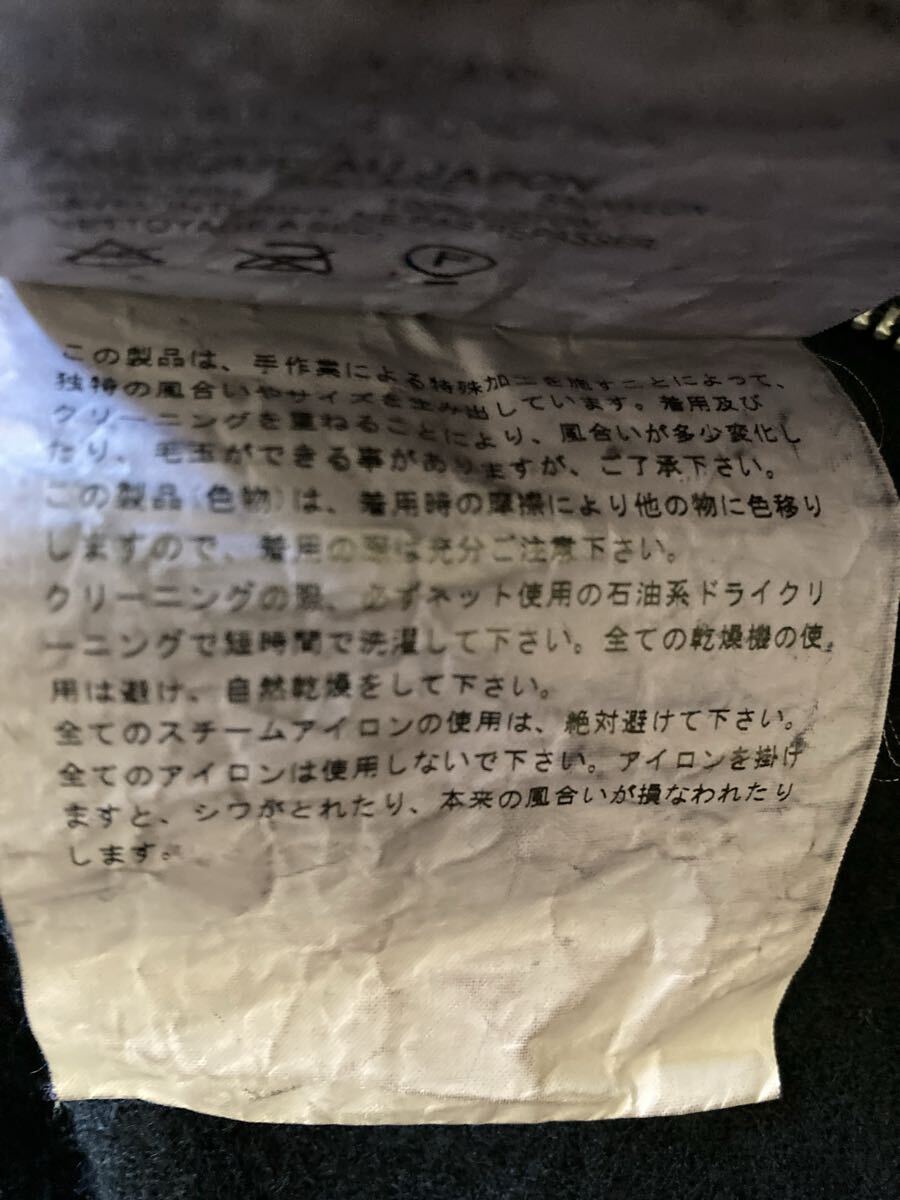 AU JAPON
この製品は、手作業による特殊加工を施すことによって、
独特の風合いやサイズを生み出しています。着用及び
クリーニングを重ねることにより、風合いが多少変化し
たり、毛玉ができる事がありますが、ご了承下さい。
この製品(色物)は、着用時の摩擦により他の物に色移り
しますので、着用の際は充分ご注意下さい。
クリーニングの際、必ずネット使用の石油系ドライクリ
ーニングで短時間で洗濯して下さい。全ての乾燥機の使
用は避け、自然乾燥をして下さい。
全てのスチームアイロンの使用は、絶対避けて下さい。
全てのアイロンは使用しないで下さい。アイロンを掛け
ますと、シワがとれたり、本来の風合いが損なわれたり
します。